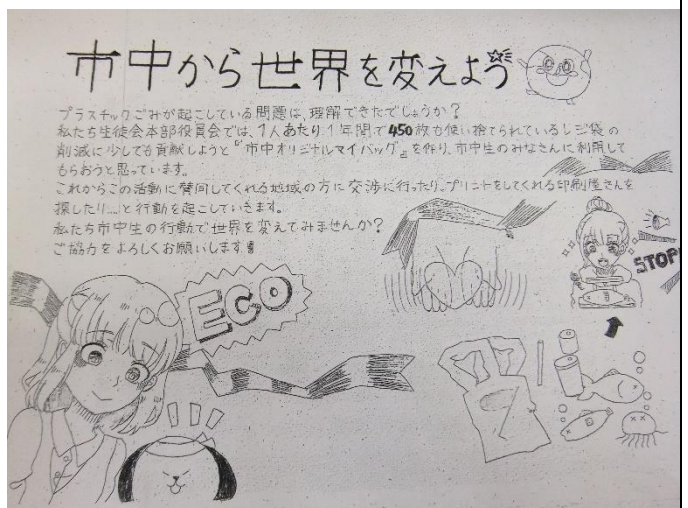 市中から世界を変えよう
プラスチックごみが起こしている問題は、理解できたでしょうか?
私たち生徒会本部役員会では、1人あたり1年間で450枚も使い捨てられているレジ袋の
削減に少しでも貢献しようと『市中オリジナルマイバッグ』を作り、市中生のみなさんに利用して
もらおうと思っています。
これからこの活動に賛同してくれる地域の方に交渉に行ったり、プリントをしてくれる印刷屋さんを
探したり...と行動を起こしていきます。
私たち市中生の行動で世界を変えてみませんか?
ご協力をよろしくお願いします!
STOP!
ECO